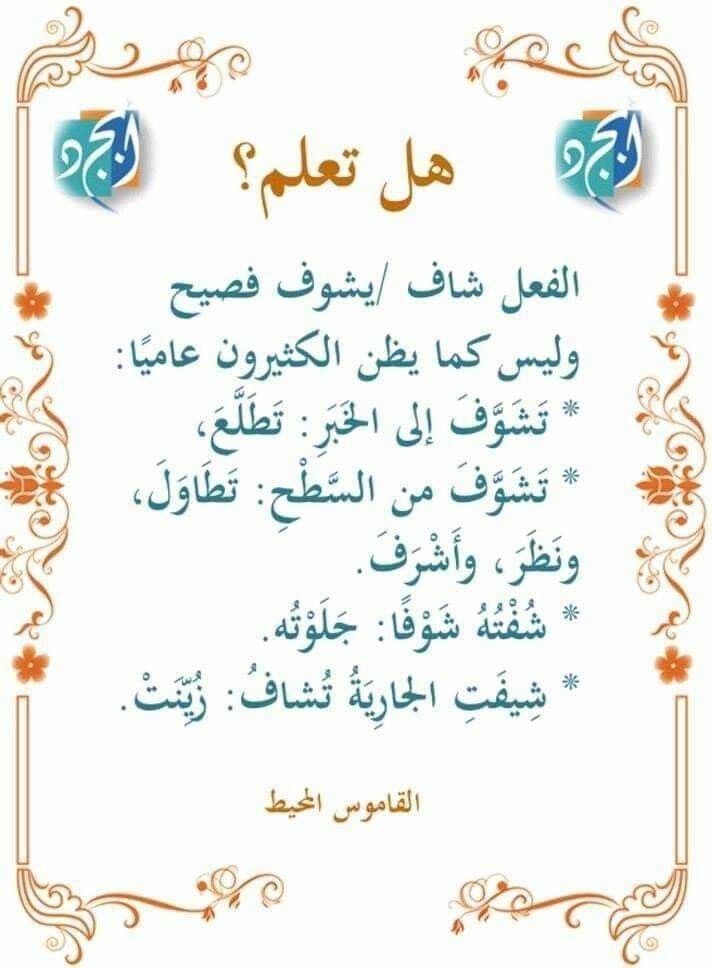 أبجد
أبجد
هل تعلم؟
الفعل شاف /يشوف فصيح
وليس كما يظن الكثيرون عاميًا:
* تَشَوَّفَ إلى الخَبَرِ: تَطَلَّعَ،
* تَشَوَّفَ من السَّطْحِ: تَطَاوَلَ،
ونَظَرَ، وأَشْرَفَ.
* شُفْتُهُ شَوْفًا: جَلَوْتُه.
* شِيفَتِ الجارِيَةُ تُشافُ: زُيِّنَتْ.
القاموس المحيط